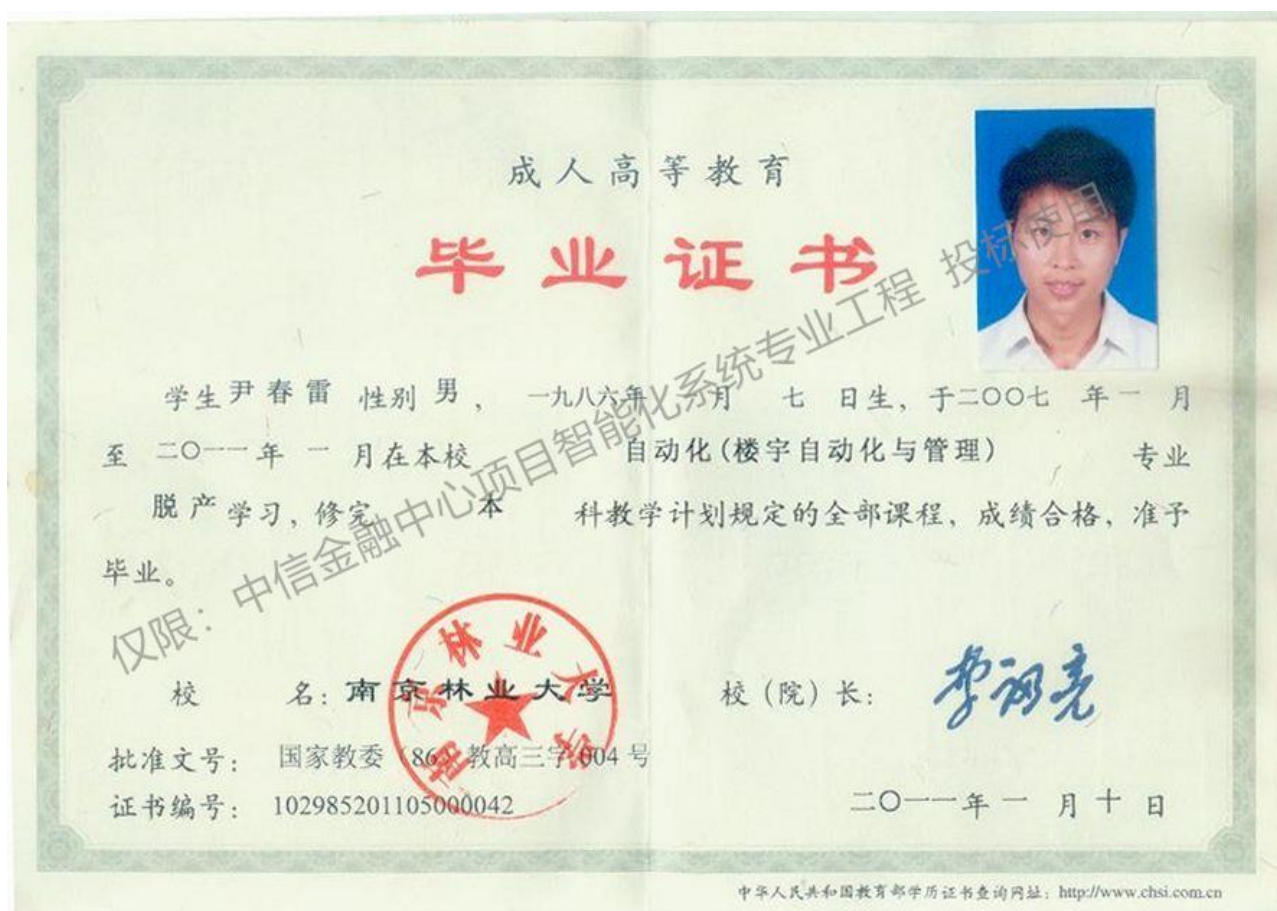 成人高等教育
毕业证书
学生 尹春雷 性别 男 ， 一九八六年 月 七 日生，于二〇〇七 年 一 月
至 二〇一一 年 一 月在本校 自动化(楼宇自动化与管理) 专业
脱产 学习，修完 本 科教学计划规定的全部课程，成绩合格，准予
毕业。
仅限：中信金融中心项目智能化系统专业工程 投标使用
南京林业大学
校 名：南京林业大学 校（院）长：
批准文号： 国家教委（86）教高三字 004 号
证书编号： 102985201105000042 二〇一一年 一 月 十 日
中华人民共和国教育部学历证书查询网址：http://www.chsi.com.cn